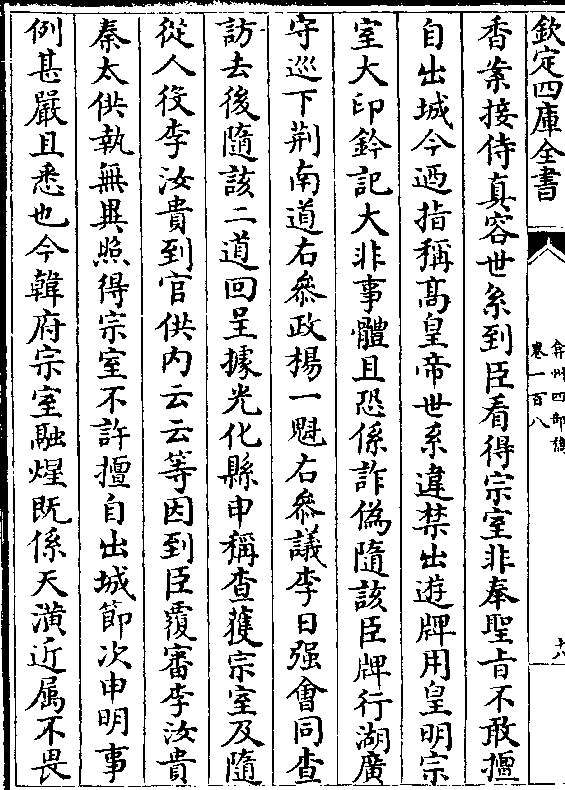 欽定四庫全書
弇州四部稿
卷一百八
十八
香案接侍真容世系到臣看得宗室非奉聖㫖不敢擅
自出城今廼指稱髙皇帝世系違禁出遊牌用皇明宗
室大印鈐記大非事體且恐係詐偽隨該臣牌行湖廣
守廵下荆南道右㕘政楊一魁右㕘議李日强㑹同查
訪去後隨該二道回呈據光化縣申稱查獲宗室及隨
從人役李汝貴到官供内云云等因到臣覆審李汝貴
秦太供執無異照得宗室不許擅自出城節次申明事
例甚嚴且悉也今韓府宗室融煋既係天潢近属不畏